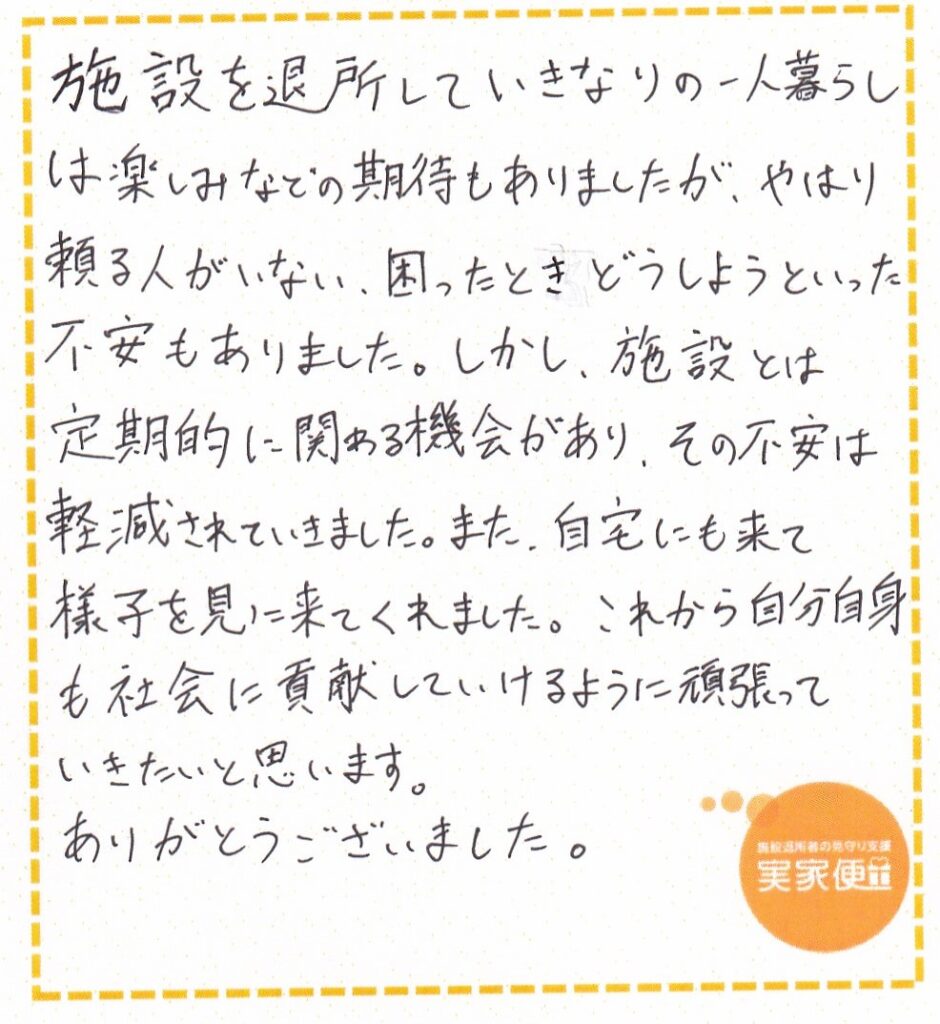 施設を退所していきなりの一人暮らし
は楽しみなどの期待もありましたが、やはり
頼る人がいない、困ったときどうしようといった
不安もありました。しかし、施設とは
定期的に関わる機会があり、その不安は
軽減されていきました。また、自宅にも来て
様子を見に来てくれました。これから自分自身
も社会に貢献していけるように頑張って
いきたいと思います。
ありがとうございました。
施設退所者の見守り支援
実家便